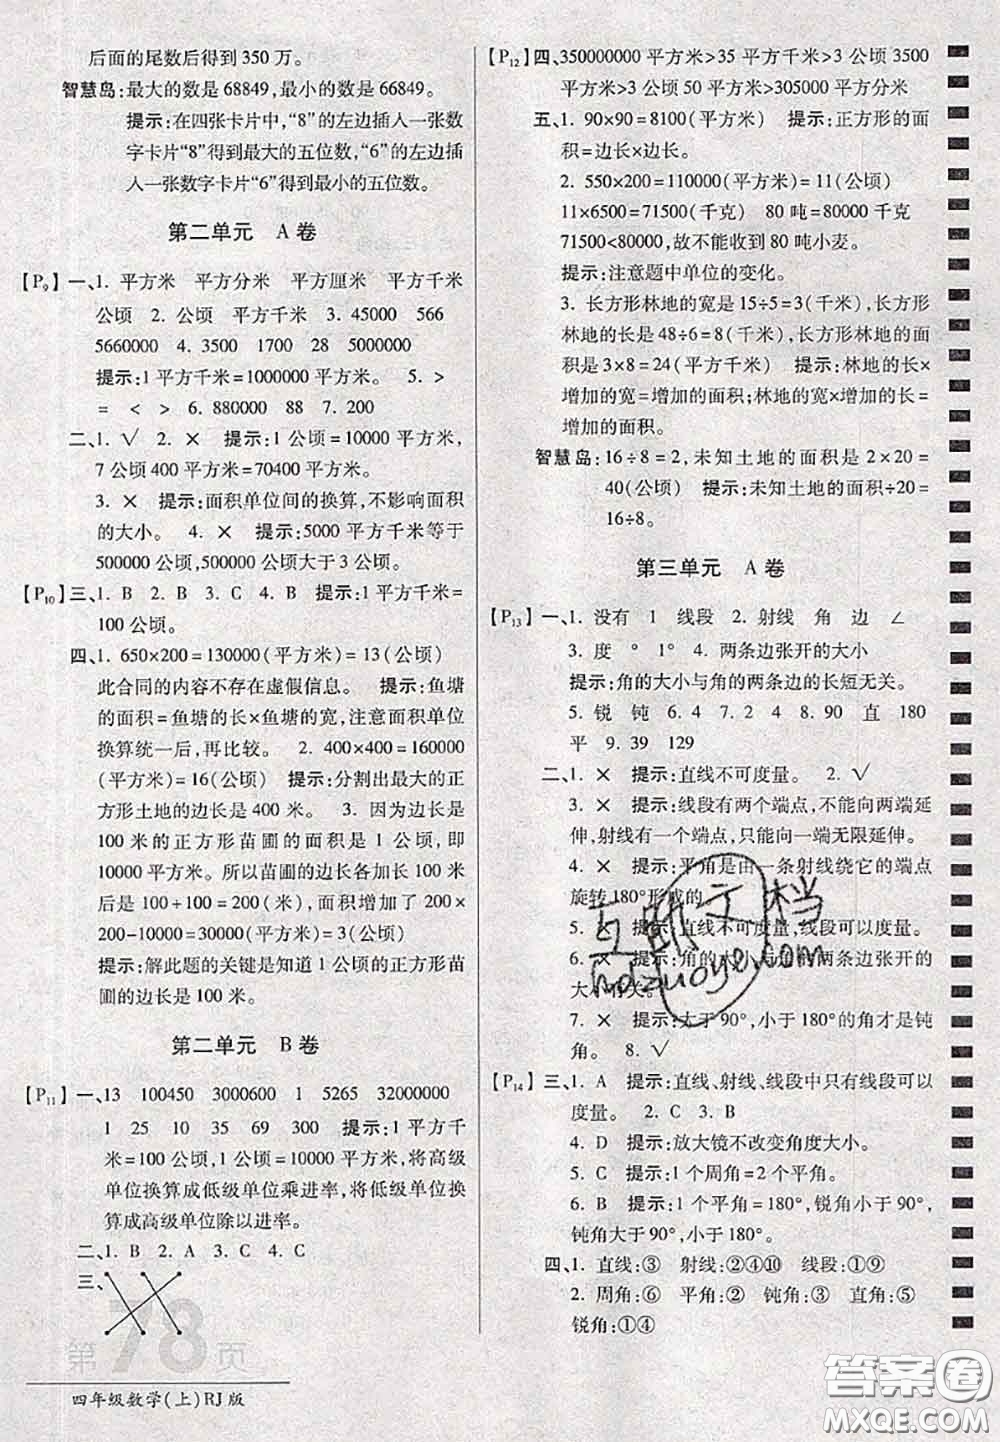 后面的尾数后得到 350 万。
智慧岛:最大的数是 68849,最小的数是 66849。
提示:在四张卡片中,“8”的左边插人一张数
字卡片“8”得到最大的五位数,“6”的左边插
人一张数字卡片“6”得到最小的五位数。
第二单元 A 卷
【P9】一、1. 平方米 平方分米 平方厘米 平方千米
公顷 2. 公顷 平方千米 3. 45000 566
5660000 4. 3500 1700 28 5000000
提示:1 平方千米=1000000 平方米。 5. >
= < > 6. 880000 88 7. 200
二、1. √ 2. × 提示:1 公顷=10000 平方米,
7 公顷 400 平方米=70400 平方米。
3. × 提示:面积单位间的换算,不影响面积
的大小。 4. × 提示:5000 平方千米等于
500000 公顷,500000 公顷大于 3 公顷。
【P10】三、1. B 2. B 3. C 4. B 提示:1 平方千米=
100 公顷。
四、1. 650×200=130000(平方米)=13(公顷)
此合同的内容不存在虚假信息。 提示:鱼塘
的面积=鱼塘的长×鱼塘的宽,注意面积单位
换算统一后,再比较。 2. 400×400=160000
(平方米)=16(公顷) 提示:分割出最大的正
方形土地的边长是 400 米。 3. 因为边长是
100 米的正方形苗圃的面积是 1 公顷,即
10000 平方米。所以苗圃的边长各加长 100 米
后是 100+100=200(米),面积增加了 200×
200-10000=30000(平方米)=3(公顷)
提示:解此题的关键是知道 1 公顷的正方形苗
圃的边长是 100 米。
第二单元 B 卷
【P11】一、13 100450 3000600 1 5265 32000000
1 25 10 35 69 300 提示:1 平方千
米=100 公顷,1 公顷=10000 平方米,将高级
单位换算成低级单位乘进率,将低级单位换
算成高级单位除以进率。
二、1. B 2. A 3. C 4. C
三、
第78页
四年级数学(上)RJ 版
【P12】四、350000000 平方米>35 平方千米>3 公顷 3500
平方米>3 公顷 50 平方米>305000 平方分米
五、1. 90×90=8100(平方米) 提示:正方形的面
积=边长×边长。
2. 550×200=110000(平方米)=11(公顷)
11×6500=71500(千克) 80 吨=80000 千克
71500<80000,故不能收到 80 吨小麦。
提示:注意题中单位的变化。
3. 长方形林地的宽是 15÷5=3(千米),长方形
林地的长是 48÷6=8(千米),长方形林地的面
积是 3×8=24(平方千米) 提示:林地的长×
增加的宽=增加的面积;林地的宽×增加的长=
增加的面积。
智慧岛:16÷8=2,未知土地的面积是 2×20=
40(公顷) 提示:未知土地的面积÷20=
16÷8。
第三单元 A 卷
【P13】一、1. 没有 1 线段 2. 射线 角 边 ∠
3. 度 ° 1° 4. 两条边张开的大小
提示:角的大小与角的两条边的长短无关。
5. 锐 钝 6. 4 7. 2 4 8. 90 直 180
平 9. 39 129
二、1. × 提示:直线不可度量。 2. √
3. × 提示:线段有两个端点,不能向两端延
伸,射线有一个端点,只能向一端无限延伸。
4. × 提示:平角是由一条射线绕它的端点
旋转 180°形成的。
5. × 提示:直线不可度量,线段可以度量。
6. × 提示:角的大小与角的两条边张开的
大小有关。
7. × 提示:大于 90°,小于 180°的角才是钝
角。 8. √
【P14】三、1. A 提示:直线、射线、线段中只有线段可以
度量。 2. C 3. B
4. D 提示:放大镜不改变角度大小。
5. C 提示:1 个周角=2 个平角。
6. B 提示:1 个平角=180°,锐角小于 90°,
钝角大于 90°,小于 180°。
四、1. 直线:③ 射线:②④⑩ 线段:①⑨
2. 周角:⑥ 平角:② 钝角:③ 直角:⑤
锐角:①④
互助文档
hdzuoye.com
答案圈
MXQE.COM